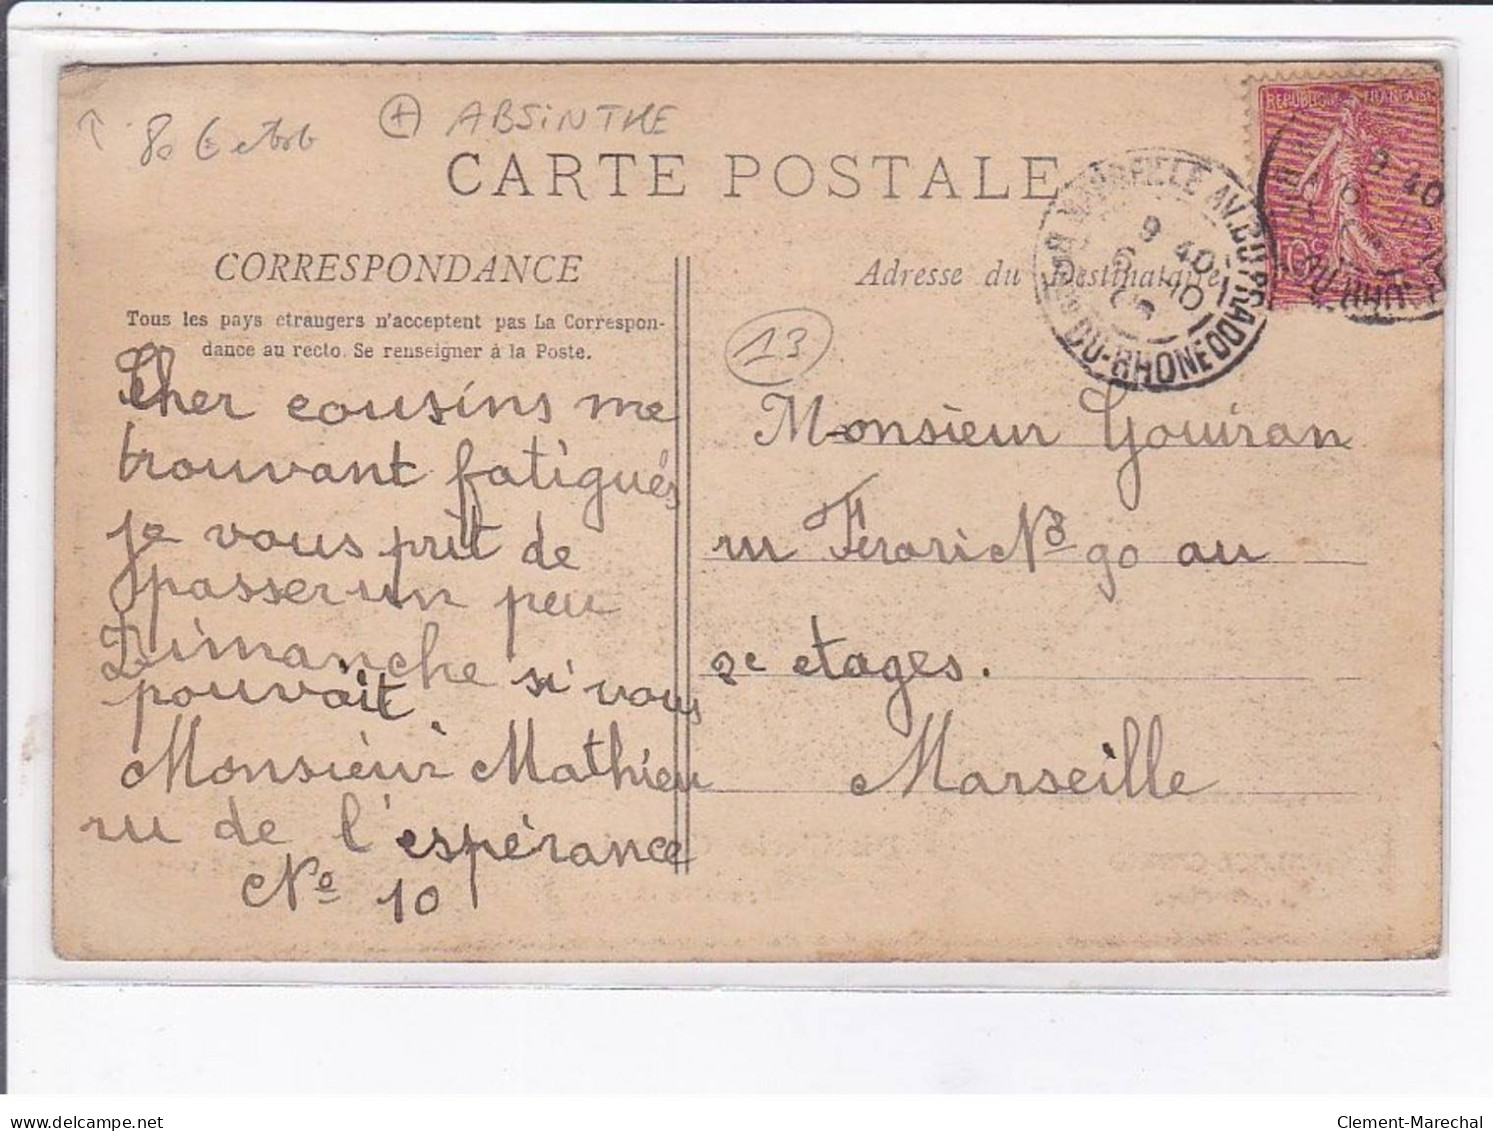 ABSINTHE
CARTE POSTALE
RÉPUBLIQUE FRANÇAISE
10c
MARSEILLE AV. DU PRADO
BCHES DU-RHONE
9 40
6 10
CORRESPONDANCE
Tous les pays etrangers n'acceptent pas La Correspon-
dance au recto. Se renseigner à la Poste.
Adresse du Destinataire
13
Cher cousins me
trouvant fatigués
je vous prit de
passer un peu
Dimanche si vous
pouvait
Monsieur Mathieu
ru de l'espérance
No 10
Monsieur Gouiran
ru Ferari No 90 au
2e etages.
Marseille
delcampe.net
Clement-Marechal